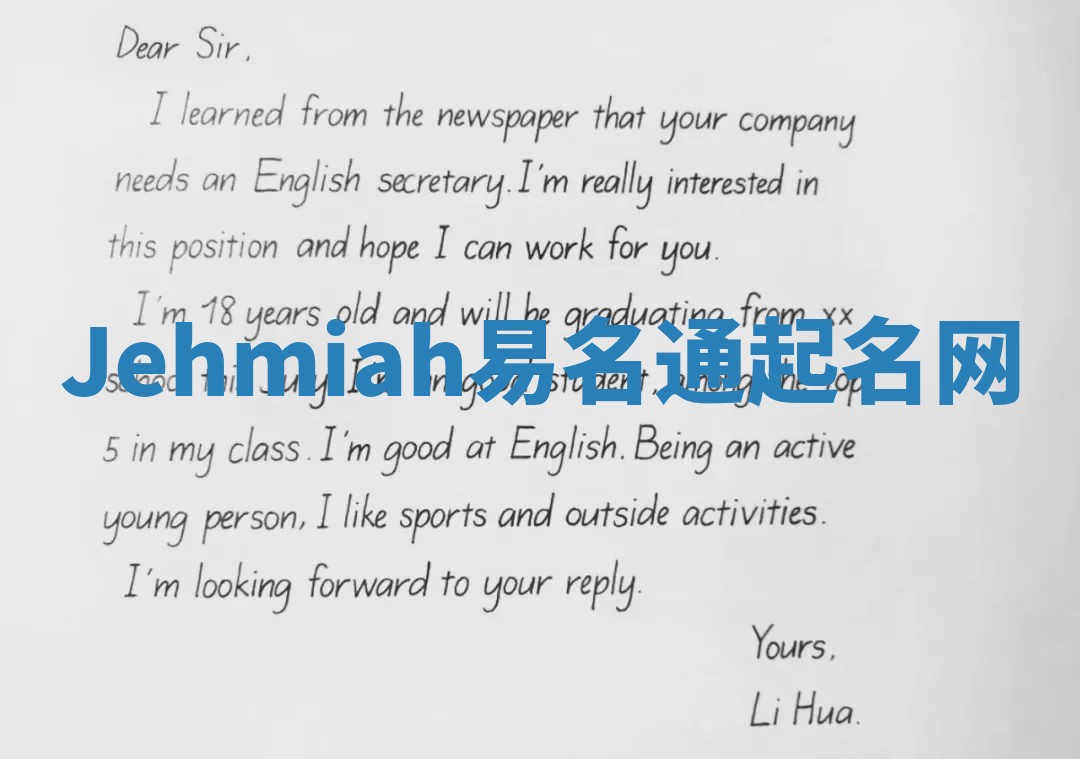 Dear Sir,
I learned from the newspaper that your company
needs an English secretary. I'm really interested in
this position and hope I can work for you.
I'm 18 years old and will be graduating from xx
Jehmiah易名通起名网
school this July. I'm good student, among the top
5 in my class. I'm good at English. Being an active
young person, I like sports and outside activities.
I'm looking forward to your reply.
Yours,
Li Hua.